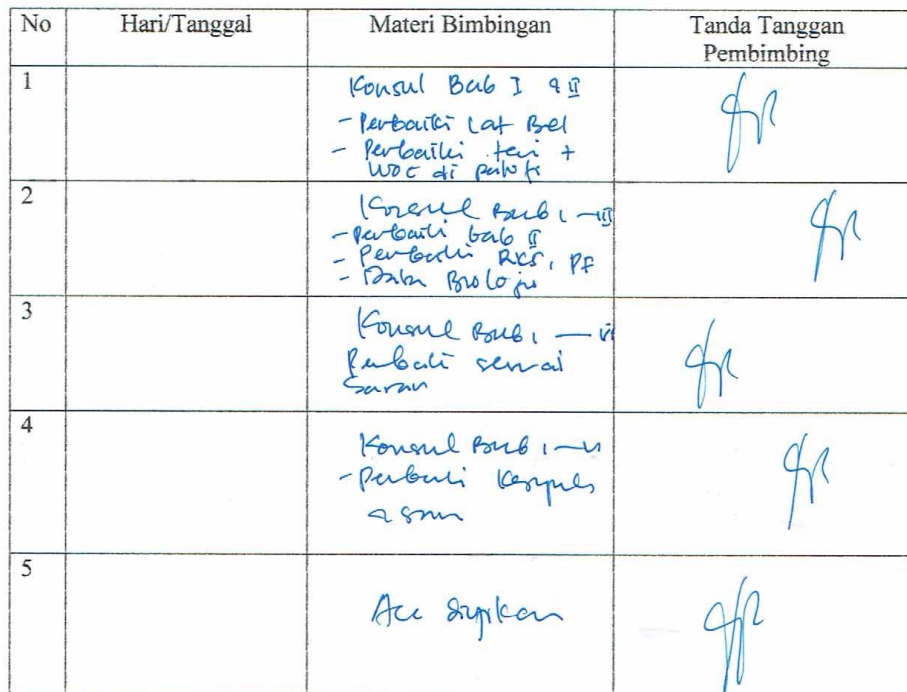 No Hari/Tanggal Materi Bimbingan Tanda Tanggan
Pembimbing
1
Konsul Bab I & II
- Perbaiki Lat Bel
- Perbaiki teri +
WOC di
2
Konsul Bab I - III
- Perbaiki bab II
- Perbaiki RKS, PF
- Data Biologis
3
Konsul Bab I - VI
Perbaiki sesuai
Saran
4
Konsul Bab I - VI
- Perbaiki
5
Acc